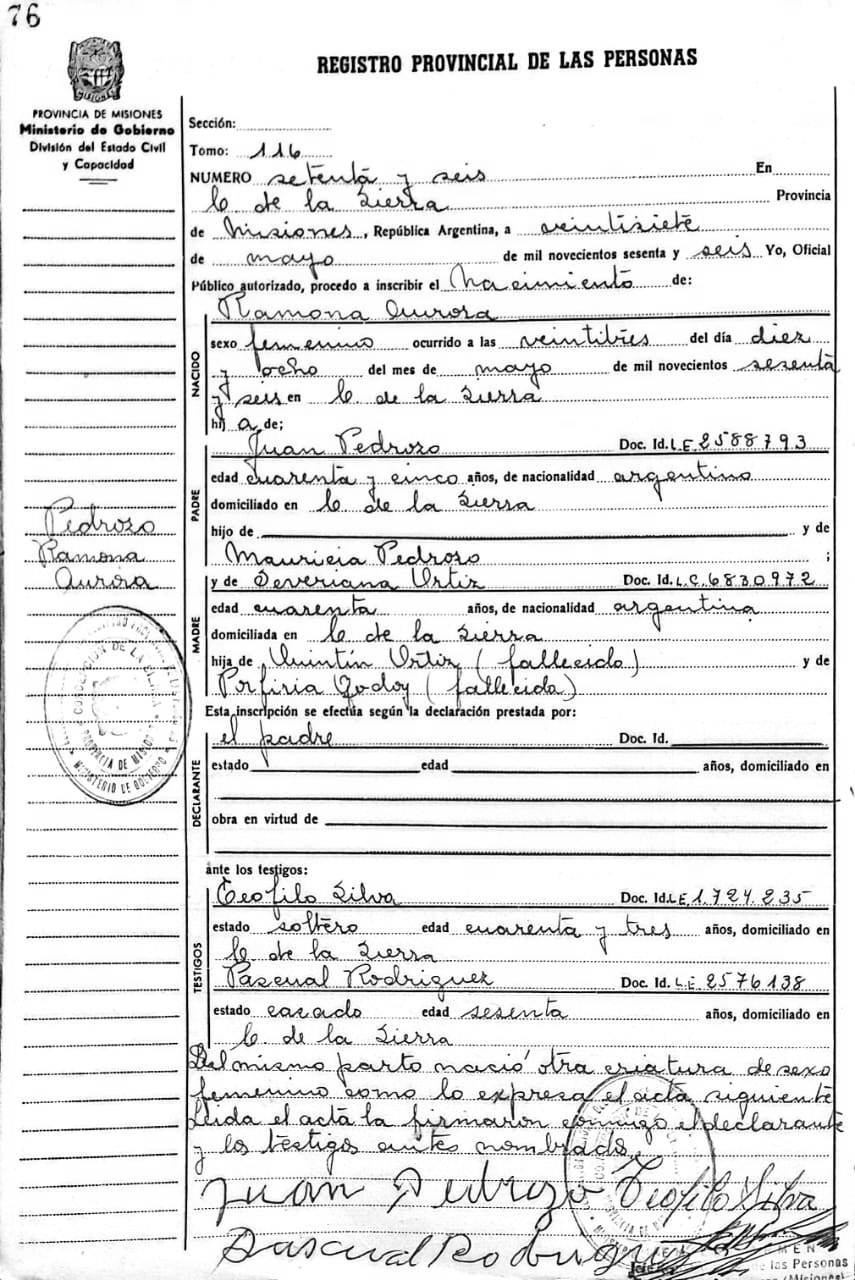 76
REGISTRO PROVINCIAL DE LAS PERSONAS
MISIONES
PROVINCIA DE MISIONES
Ministerio de Gobierno
División del Estado Civil
y Capacidad
Sección:
Tomo: 116
NUMERO setenta y seis En
C de la Sierra Provincia
de Misiones, República Argentina, a veintisiete
de mayo de mil novecientos sesenta y seis Yo, Oficial
Público autorizado, procedo a inscribir el Nacimiento de:
NACIDO
Ramona Aurora
sexo femenino ocurrido a las veintitres del día diez
y ocho del mes de mayo de mil novecientos sesenta
y seis en C de la Sierra
hij a de;
PADRE
Juan Pedrozo Doc. Id. L.E 2588793
edad cuarenta y cinco años, de nacionalidad argentino
domiciliado en C de la Sierra
hijo de y de
Mauricia Pedrozo ;
Pedrozo
Ramona
Aurora
MADRE
y de Severiana Ortiz Doc. Id. L.C. 6830972
edad cuarenta años, de nacionalidad argentina
domiciliada en C de la Sierra
hija de Quintín Ortiz (fallecido) y de
Porfiria Godoy (fallecida)
CONCEPCION DE LA SIERRA
PROVINCIA DE MISIONES
MINISTERIO DE GOBIERNO
Esta inscripción se efectúa según la declaración prestada por:
DECLARANTE
el padre Doc. Id.
estado edad años, domiciliado en
obra en virtud de
ante los testigos:
TESTIGOS
Teofilo Silva Doc. Id. L.E. 1.724.235
estado soltero edad cuarenta y tres años, domiciliado en
C de la Sierra
Pascual Rodriguez Doc. Id. L.E. 2576138
estado casado edad sesenta años, domiciliado en
C de la Sierra
Del mismo parto nació otra criatura de sexo
femenino como lo expresa el acta siguiente
Leida el acta la firmaron conmigo el declarante
y los testigos antes nombrado.
Juan Pedrozo Teofilo Silva
Pascual Rodriguez
de las Personas
(Misiones)